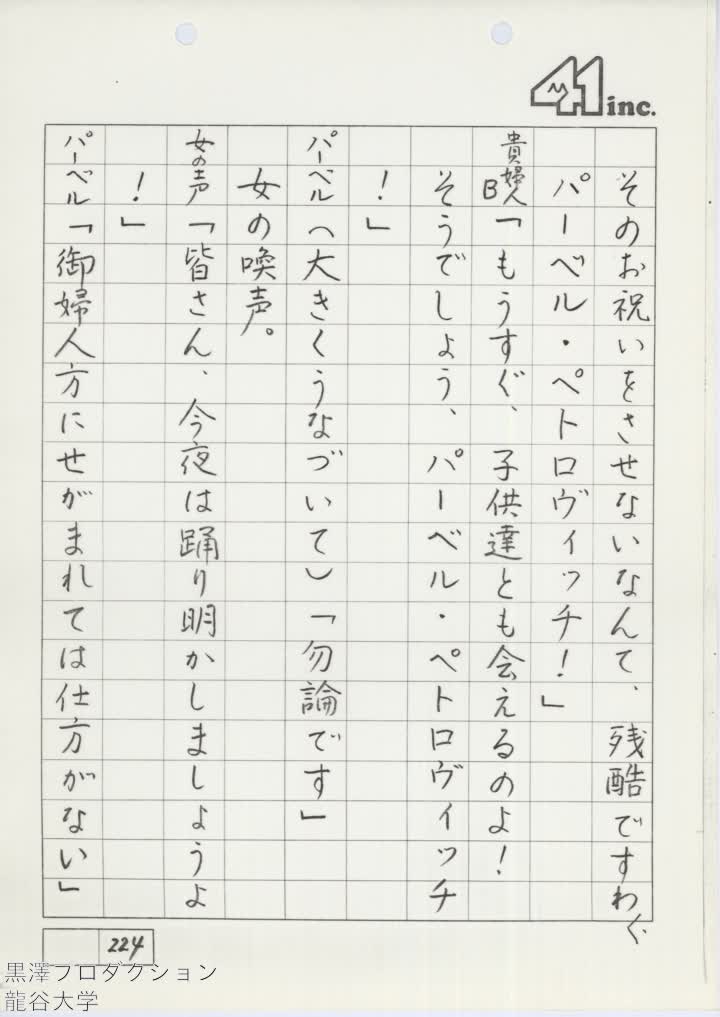 41 inc.
そのお祝いをさせないなんて、残酷ですわ〳〵
パーベル・ペトロヴィッチ!」
貴婦人B「もうすぐ、子供達とも会えるのよ!
そうでしょう、パーベル・ペトロヴィッチ
!」
パーベル(大きくうなづいて)「勿論です」
女の喚声。
女の声「皆さん、今夜は踊り明かしましょうよ
!」
パーベル「御婦人方にせがまれては仕方がない」
224
黒澤プロダクション
龍谷大学